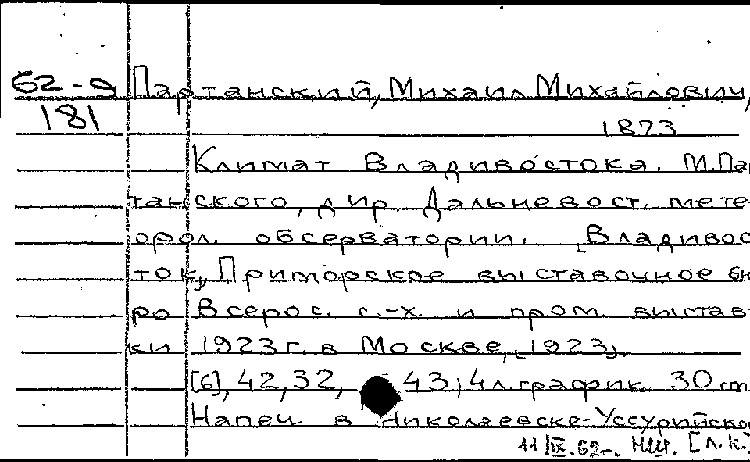 62-9 Партанский, Михаил Михайлович,
181
1873
Климат Владивостока. М.Пар
танского, дир. Дальневост. мете-
орол. обсерватории. [Владивос
ток, Приморское выставочное бю
ро Всерос. с.-х. и пром. выстав-
ки 1923 г. в Москве, 1923].
[6], 42, 32, 43; 4 л. график. 30 см.
Напеч. в Никольске-Уссурийско
11/IX.62-. [л.к.]